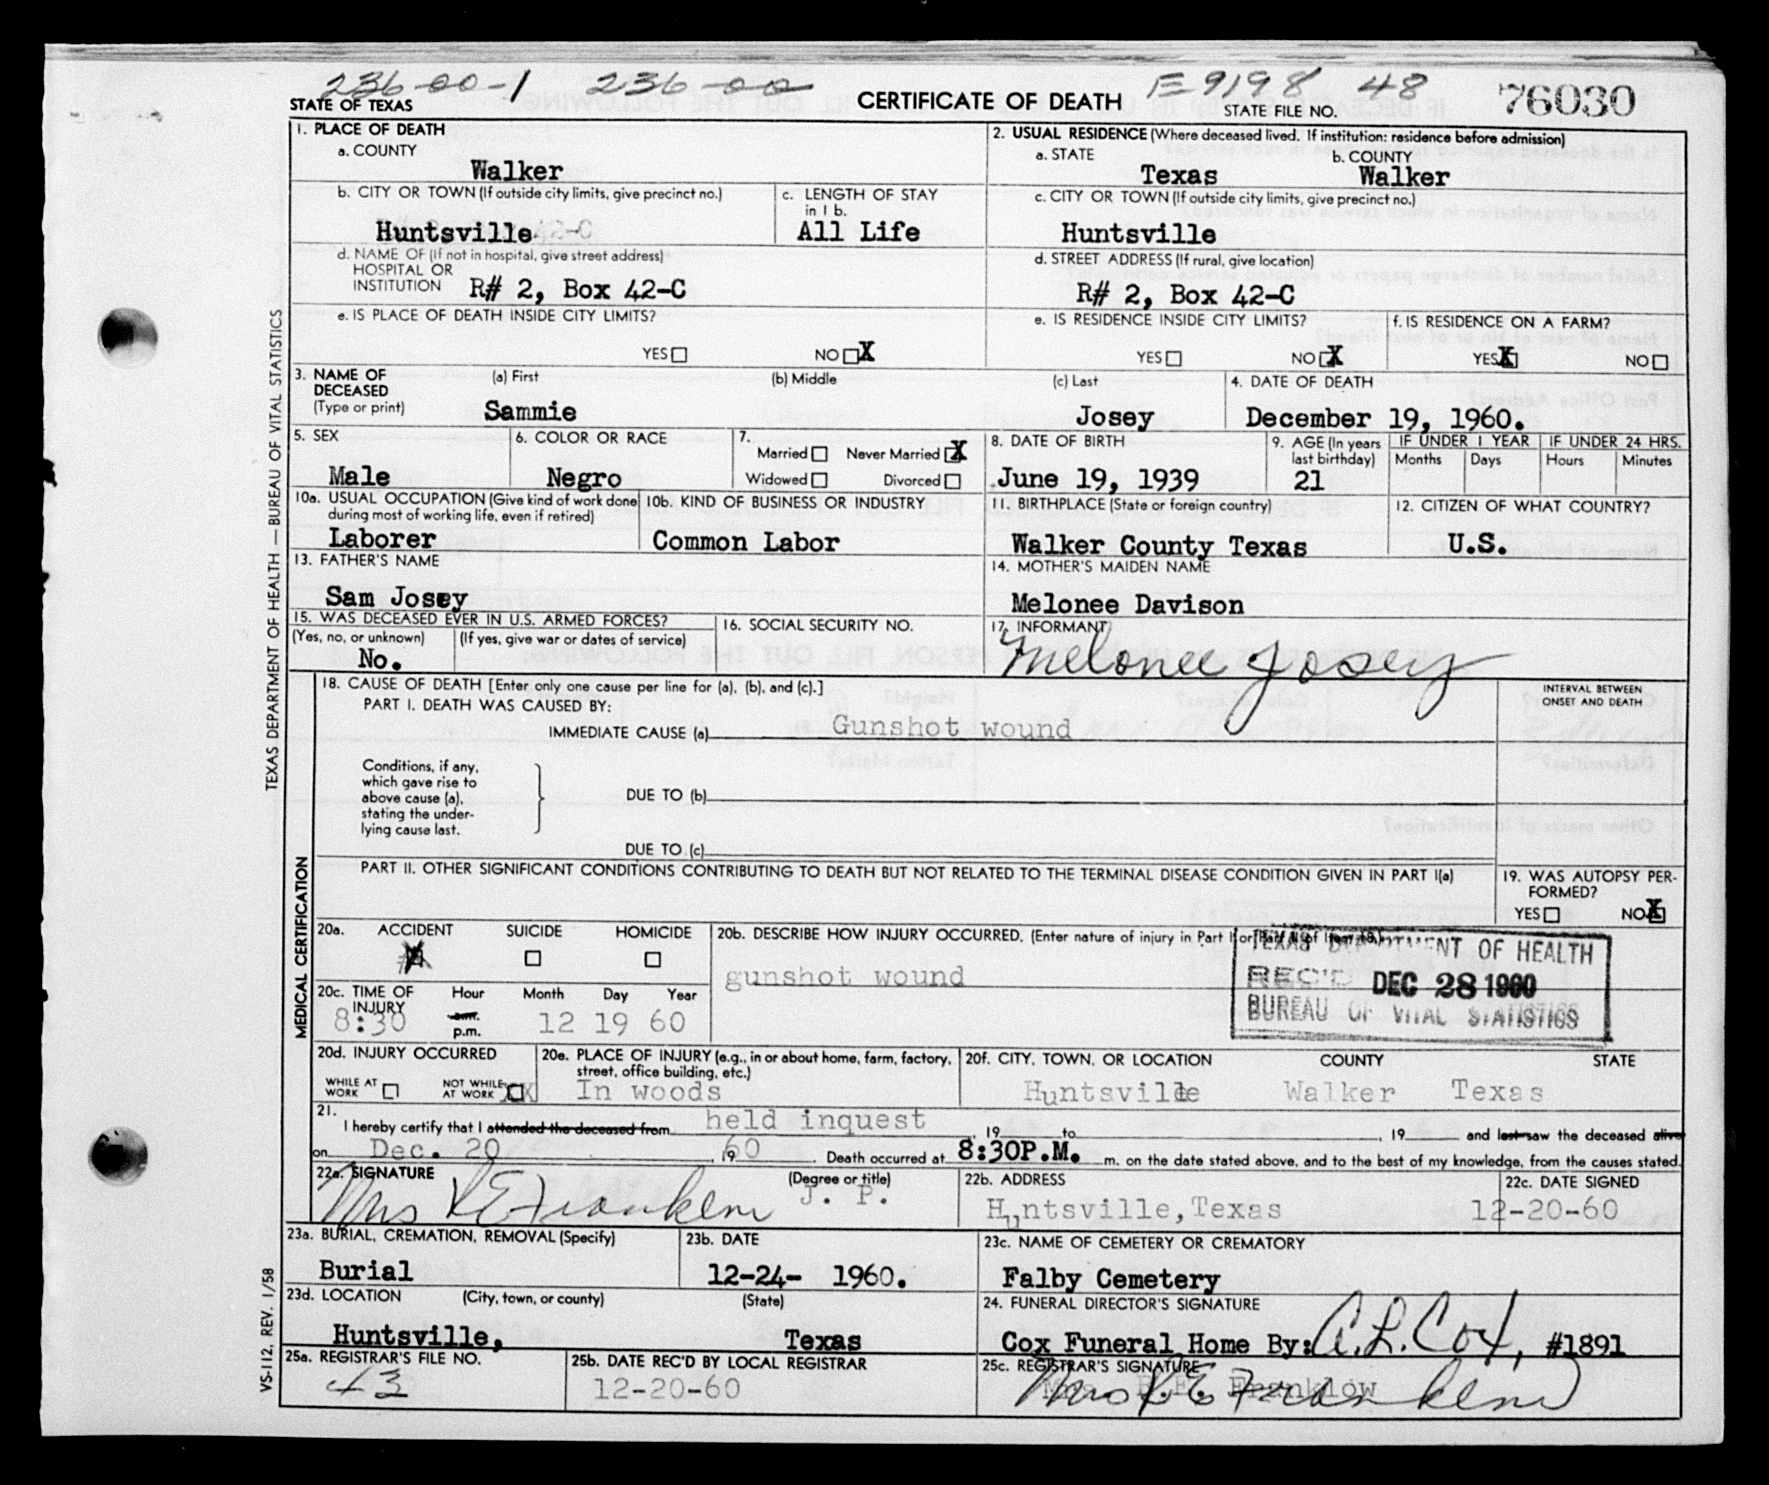 236-00-1 236-00 E9198 48
STATE OF TEXAS CERTIFICATE OF DEATH STATE FILE NO. 76030
TEXAS DEPARTMENT OF HEALTH — BUREAU OF VITAL STATISTICS
1. PLACE OF DEATH
a. COUNTY
Walker
2. USUAL RESIDENCE (Where deceased lived. If institution: residence before admission)
a. STATE b. COUNTY
Texas Walker
b. CITY OR TOWN (If outside city limits, give precinct no.)
Huntsville
c. LENGTH OF STAY
in 1 b.
All Life
c. CITY OR TOWN (If outside city limits, give precinct no.)
Huntsville
d. NAME OF (If not in hospital, give street address)
HOSPITAL OR
INSTITUTION R# 2, Box 42-C
d. STREET ADDRESS (If rural, give location)
R# 2, Box 42-C
e. IS PLACE OF DEATH INSIDE CITY LIMITS?
YES NO X
e. IS RESIDENCE INSIDE CITY LIMITS?
YES NO X
f. IS RESIDENCE ON A FARM?
YES X NO
3. NAME OF
DECEASED
(Type or print)
(a) First (b) Middle (c) Last
Sammie Josey
4. DATE OF DEATH
December 19, 1960.
5. SEX
Male
6. COLOR OR RACE
Negro
7.
Married Never Married X
Widowed Divorced
8. DATE OF BIRTH
June 19, 1939
9. AGE (In years
last birthday)
21
IF UNDER 1 YEAR IF UNDER 24 HRS.
Months Days Hours Minutes
10a. USUAL OCCUPATION (Give kind of work done
during most of working life, even if retired)
Laborer
10b. KIND OF BUSINESS OR INDUSTRY
Common Labor
11. BIRTHPLACE (State or foreign country)
Walker County Texas
12. CITIZEN OF WHAT COUNTRY?
U.S.
13. FATHER'S NAME
Sam Josey
14. MOTHER'S MAIDEN NAME
Melonee Davison
15. WAS DECEASED EVER IN U.S. ARMED FORCES?
(Yes, no, or unknown) (If yes, give war or dates of service)
No.
16. SOCIAL SECURITY NO.
17. INFORMANT
Melonee Josey
MEDICAL CERTIFICATION
18. CAUSE OF DEATH [Enter only one cause per line for (a), (b), and (c).]
PART I. DEATH WAS CAUSED BY:
IMMEDIATE CAUSE (a) Gunshot wound
INTERVAL BETWEEN
ONSET AND DEATH
Conditions, if any,
which gave rise to
above cause (a),
stating the under-
lying cause last.
DUE TO (b)
DUE TO (c)
PART II. OTHER SIGNIFICANT CONDITIONS CONTRIBUTING TO DEATH BUT NOT RELATED TO THE TERMINAL DISEASE CONDITION GIVEN IN PART I(a)
19. WAS AUTOPSY PER-
FORMED?
YES NO X
20a. ACCIDENT SUICIDE HOMICIDE
X
20b. DESCRIBE HOW INJURY OCCURRED. (Enter nature of injury in Part I or Part II of Item 18.)
gunshot wound
TEXAS DEPARTMENT OF HEALTH
REC'D DEC 28 1960
BUREAU OF VITAL STATISTICS
20c. TIME OF
INJURY
Hour Month Day Year
8:30 a.m. p.m. 12 19 60
20d. INJURY OCCURRED
WHILE AT
WORK
NOT WHILE
AT WORK XX
20e. PLACE OF INJURY (e.g., in or about home, farm, factory,
street, office building, etc.)
In woods
20f. CITY, TOWN, OR LOCATION COUNTY STATE
Huntsville Walker Texas
21.
I hereby certify that I attended the deceased from held inquest, 19 to , 19 and last saw the deceased alive
on Dec. 20, 1960. Death occurred at 8:30P.M. m. on the date stated above, and to the best of my knowledge, from the causes stated.
22a. SIGNATURE (Degree or title)
J. P.
22b. ADDRESS
Huntsville, Texas
22c. DATE SIGNED
12-20-60
23a. BURIAL, CREMATION, REMOVAL (Specify)
Burial
23b. DATE
12-24- 1960.
23c. NAME OF CEMETERY OR CREMATORY
Falby Cemetery
23d. LOCATION (City, town, or county) (State)
Huntsville, Texas
24. FUNERAL DIRECTOR'S SIGNATURE
Cox Funeral Home By: A.L. Cox, #1891
25a. REGISTRAR'S FILE NO.
43
25b. DATE REC'D BY LOCAL REGISTRAR
12-20-60
25c. REGISTRAR'S SIGNATURE
Mrs
VS-112, REV. 1/58